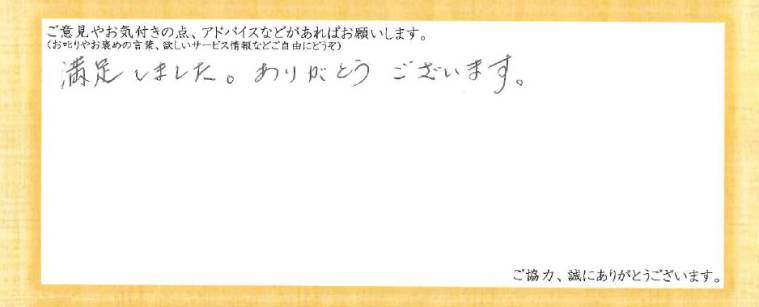 ご意見やお気付きの点、アドバイスなどがあればお願いします。
(お叱りやお褒めの言葉、欲しいサービス情報などご自由にどうぞ)
満足しました。ありがとうございます。
ご協力、誠にありがとうございます。